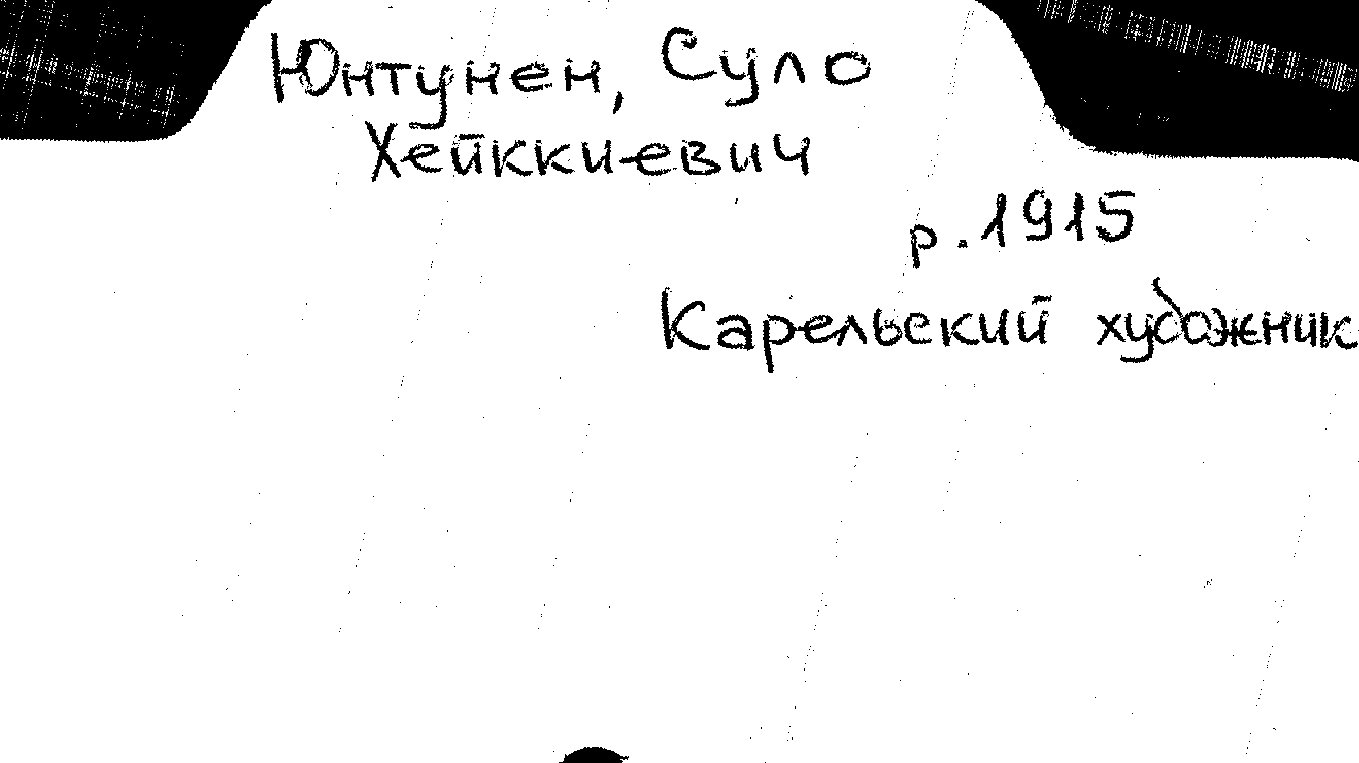 Юнтунен, Суло
Хейккиевич
р. 1915
Карельский художник